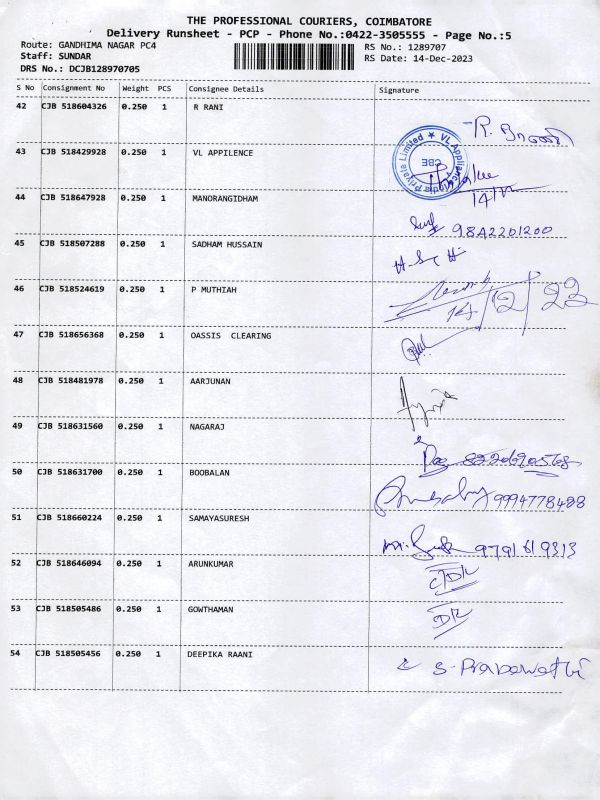 THE PROFESSIONAL COURIERS, COIMBATORE
Delivery Runsheet - PCP - Phone No.:0422-3505555 - Page No.:5
Route: GANDHIMA NAGAR PC4 RS No.: 1289707
Staff: SUNDAR RS Date: 14-Dec-2023
DRS No.: DCJB128970705
S No Consignment No Weight PCS Consignee Details Signature
42 CJB 518604326 0.250 1 R RANI
R.
43 CJB 518429928 0.250 1 VL APPILENCE
VL Appliance India Private Limited ★ CBE
14/12
44 CJB 518647928 0.250 1 MANORANGIDHAM
9842201200
45 CJB 518507288 0.250 1 SADHAM HUSSAIN
46 CJB 518524619 0.250 1 P MUTHIAH
14/12/23
47 CJB 518656368 0.250 1 OASSIS CLEARING
48 CJB 518481978 0.250 1 AARJUNAN
49 CJB 518631560 0.250 1 NAGARAJ
50 CJB 518631700 0.250 1 BOOBALAN
9994778488
51 CJB 518660224 0.250 1 SAMAYASURESH
9791619313
52 CJB 518646094 0.250 1 ARUNKUMAR
53 CJB 518505486 0.250 1 GOWTHAMAN
54 CJB 518505456 0.250 1 DEEPIKA RAANI
S. Prabawathi